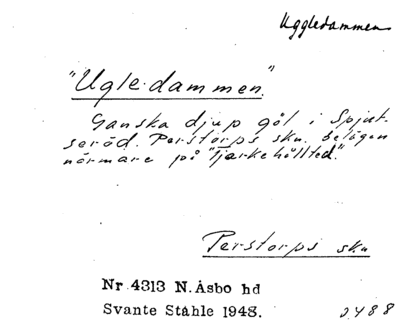 Uggledammen
"Ugledammen."
Ganska djup göl i Spjut-
seröd. Perstorps skn. belägen
närmare på "Tjärkehållted".
Perstorps skn
Nr 4313 N. Åsbo hd
Svante Ståhle 1943.
2488